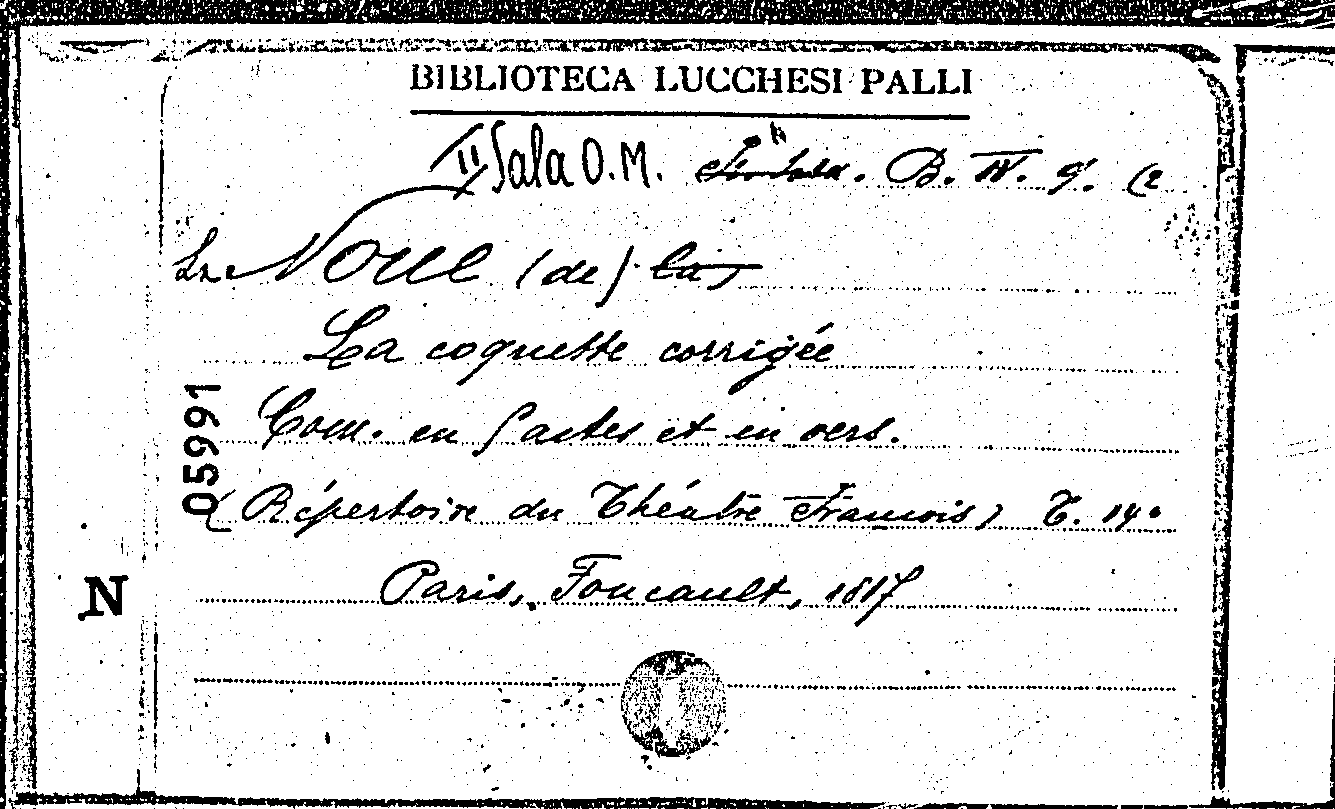 BIBLIOTECA LUCCHESI PALLI
II Sala O.M. B. IV. 9. (2
La Noue (de) la
La coquette corrigée
Com. en 5 actes et en vers.
(Répertoire du Théâtre François) T. 14°
Paris, Foucault, 1817
05991
N